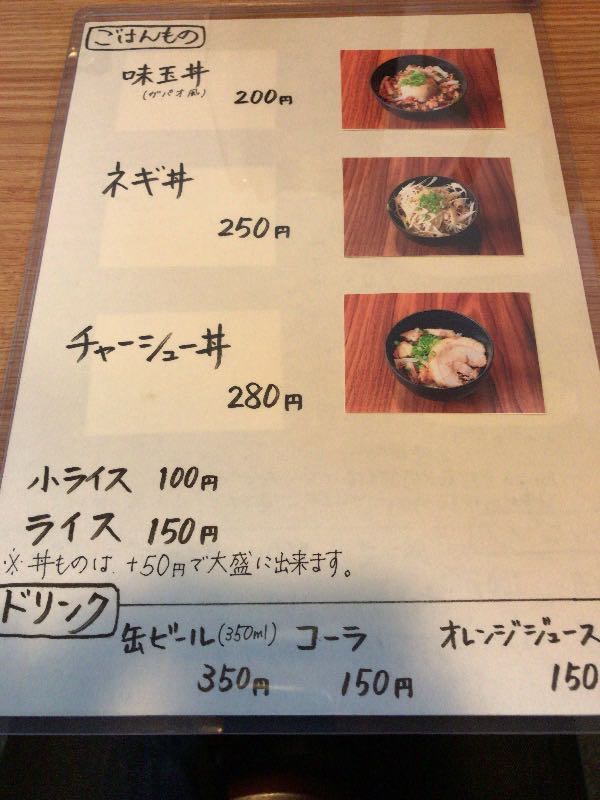 ごはんもの
味玉丼
(ガパオ風) 200円
ネギ丼
250円
チャーシュー丼
280円
小ライス 100円
ライス 150円
※丼ものは、+50円で大盛に出来ます。
ドリンク
缶ビール(350ml) コーラ オレンジジュース
350円 150円 150